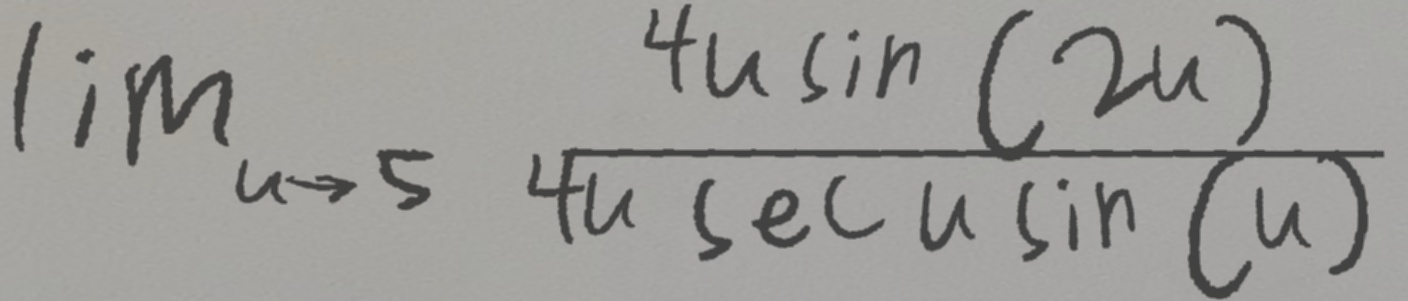 lim u→5 4u sin (2u)
4u sec u sin (u)